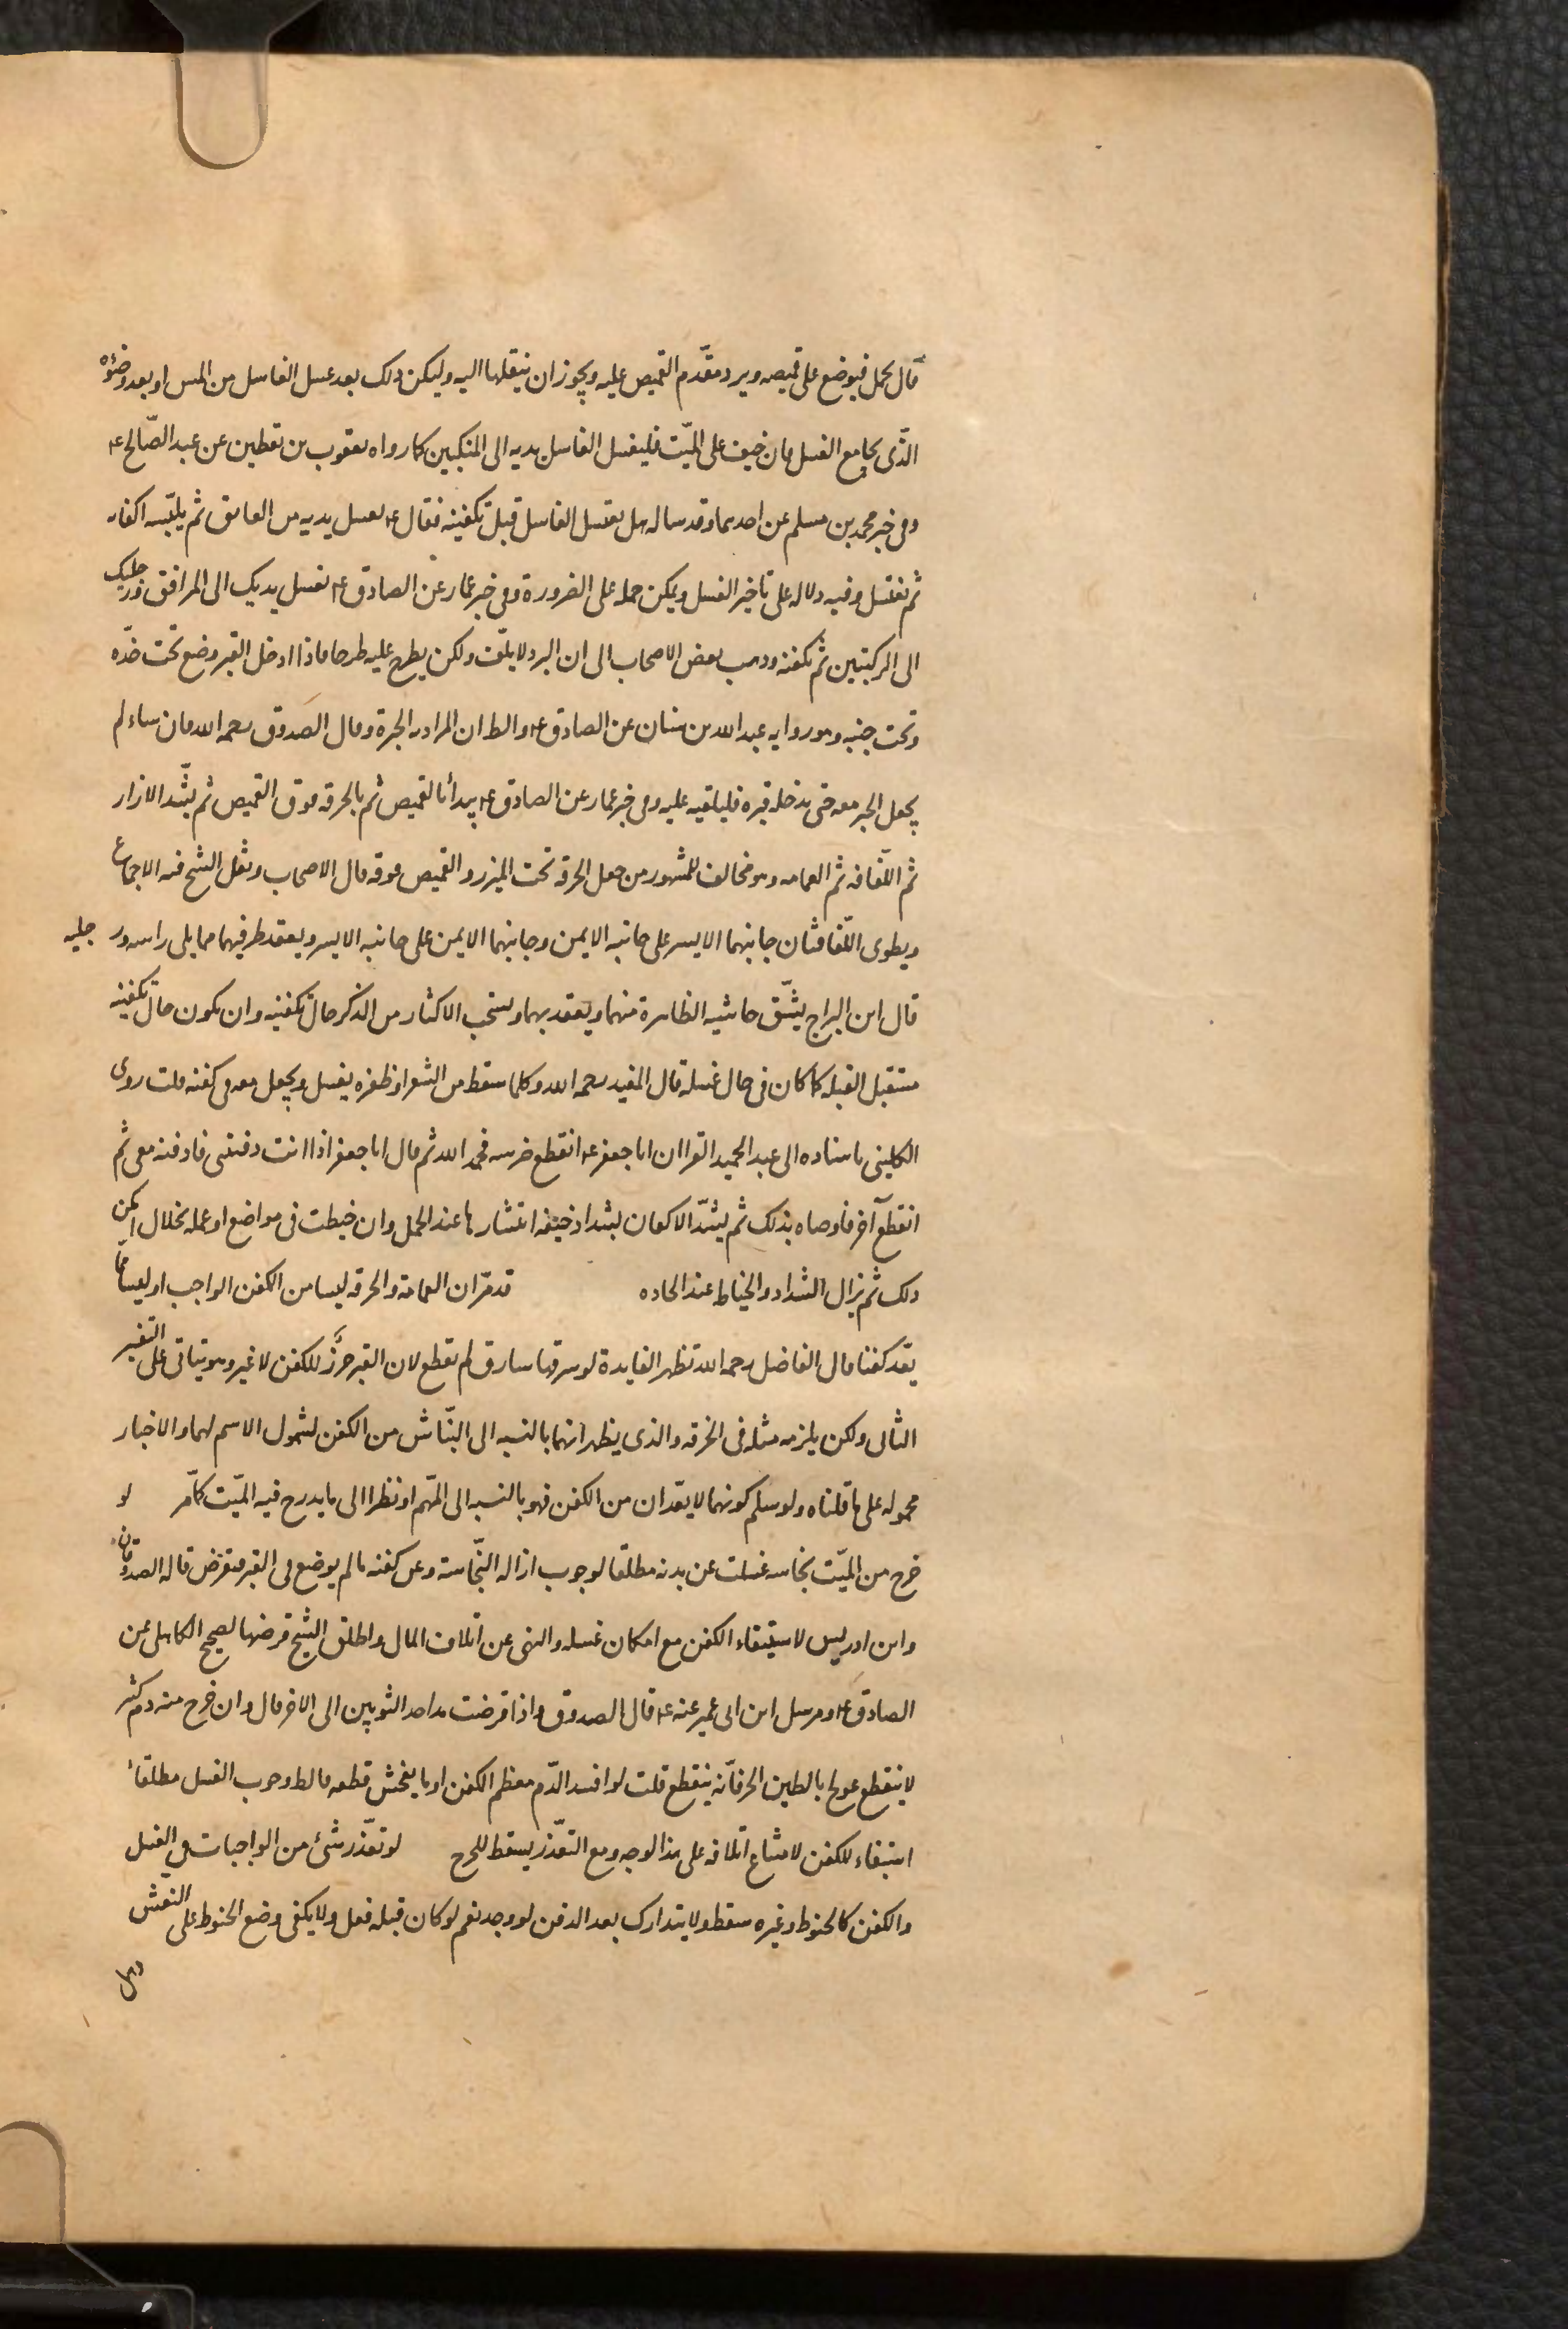 قال يحمل فيوضع على قميصه ويرد مقدّم القميص عليه ويجوز ان ينقلها اليه وليكن ذلك بعد غسل الغاسل من المس او بعد وضوئه
الّذى يجامع الغسل فان خيف على الميّت فليغسل الغاسل يديه الى المنكبين كما رواه يعقوب بن يقطين عن عبد الصّالح ع
وفى خبر محمد بن مسلم عن احدهما وقد ساله هل يغتسل الغاسل قبل تكفينه فقال ع يغسل يديه من العاتق ثم يلبّسه اكفانه
ثم يغتسل وفيه دلاله على تاخير الغسل ويمكن حمله على الضرورة وفى خبر عمّار عن الصادق ع تغسل يديك الى المرافق ورجليك
الى الركبتين ثم تكفنه وذهب بعض الاصحاب الى ان البرد لا يلّف ولكن يطرح عليه طرحا فاذا ادخل القبر وضع تحت خدّه
وتحت جنبه وهو روايه عبد الله بن سنان عن الصادق ع والظ ان المراد به الحبرة وقال الصدوق رحمه الله فان شاء لم
يجعل الحبر معه حتى يدخله قبره فليلقيه عليه وفى خبر عمار عن الصادق ع يبدأ بالقميص ثم بالخرقه فوق القميص ثم يشّد الازار
ثم اللّفافه ثم العمامه وهو مخالف للمشهور من جعل الخرقه تحت الميزر والقميص فوقه قال الاصحاب ونقل الشيخ فيه الاجماع
ويطوى اللّفافتان جانبهما الايسر على جانبه الايمن وجانبهما الايمن على جانبه الايسر ويعقد طرفيهما مما يلى راسه ورجليه
قال ابن البراج يشّق حاشيه الظاهرة منهما ويعقد بهما ويستحب الاكثار من الذكر حال تكفينه وان يكون حال تكفينه
مستقبل القبله كما كان فى حال غسله قال المفيد رحمه الله وكلما سقط من الشعر او ظفره يغسل ويجعل معه فى كفنه قلت روى
الكلينى باسناده الى عبد الحميد الفرا ان ابا جعفر ع انقطع ضرسه فحمد الله ثم قال ابا جعفر اذا انت دفنتنى فادفنه معى ثم
انقطع آخر فاوصاه بذلك ثم يشدّ الاكفان بشداد خيفه انتشارها عند الحمل وان خيطت فى مواضع او عمله بخلال امكن
ذلك ثم يزال الشداد والخياط عند الحاده قد مرّ ان العمامة والخرقه ليسا من الكفن الواجب او ليسا مما
يعّد كفنا قال الفاضل رحمه الله تظهر الفايدة لو سرقها سارق لم يقطع لان القبر حرز للكفن لا غير وهو يتاتى على التفسير
الثانى ولكن يلزمه مثله فى الخرقه والذى يظهر انهما بالنسبه الى النبّاش من الكفن لشمول الاسم لهما والاخبار
محموله على ما قلناه ولو سلم كونهما لا يعّدان من الكفن فهو بالنسبه الى المهّم او نظرا الى ما يدرج فيه الميّت كما مّر لو
خرج من الميّت نجاسه غسلت عن بدنه مطلقا لوجوب ازاله النجّاسة وعن كفنه ما لم يوضع فى القبر فتقرض قاله الصدوقان
وابن ادريس لاستبقاء الكفن مع امكان غسله والنهى عن اتلاف المال واطلق الشيخ قرضها لصحيح الكاهلى عن
الصادق ع ومرسل ابن ابى عمير عنه ع قال الصدوق واذا قرضت مد احد الثوبين الى الاخر قال وان خرج منه دم كثير
لا ينقطع عولج بالطين الحر فانّه ينقطع قلت لو افسد الدّم معظم الكفن او ما يفحش قطعه فالظ وجوب الغسل مطلقا
استبقاء للكفن لامتناع اتلافه على هذا الوجه ومع التعّذر يسقط للحرج لو تعّذر شىء من الواجبات فى الغسل
والكفن كالحنوط وغيره سقط ولا يتدارك بعد الدفن لو وجد نعم لو كان قبله فعل ولا يكفى وضع الحنوط على النعش